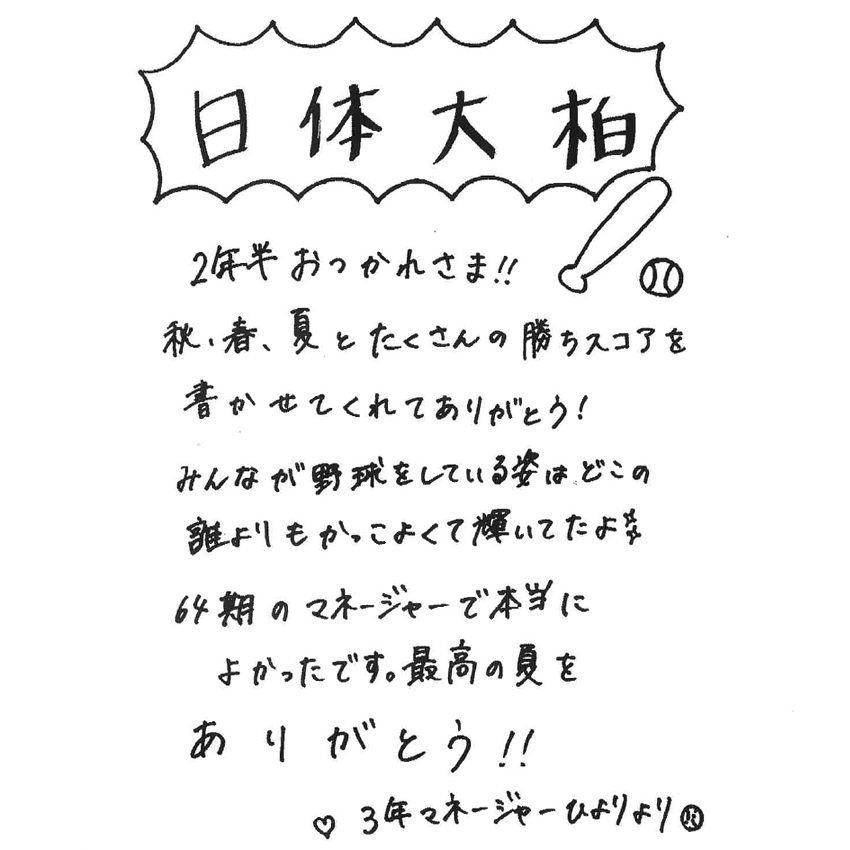 日体大柏
2年半おつかれさま!!
秋、春、夏とたくさんの勝ちスコアを
書かせてくれてありがとう!
みんなが野球をしている姿はどこの
誰よりもかっこよくて輝いてたよ
64期のマネージャーで本当に
よかったです。最高の夏を
ありがとう!!
♡ 3年マネージャーひよりより